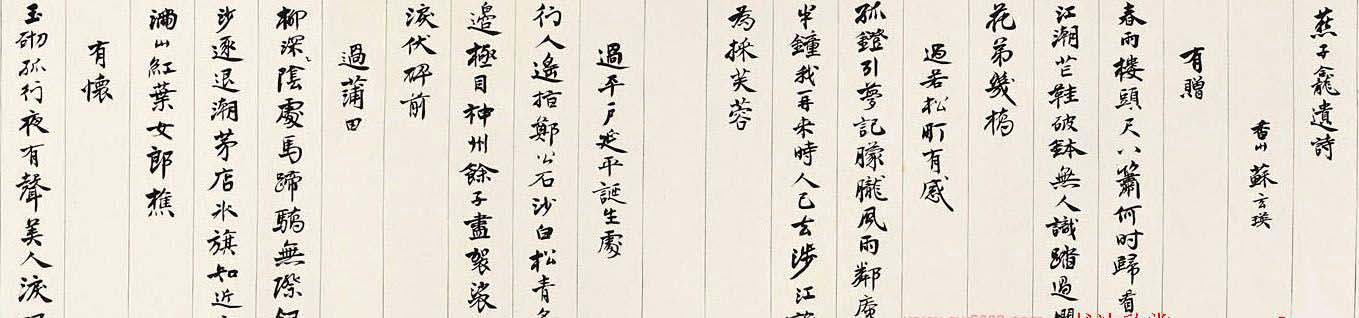 燕子龕遺詩
香山 蘇玄瑛
有贈
春雨樓頭尺八簫何时歸看
江潮芒鞋破鉢無人識踏過
花弟幾橋
過若松町有感
孤鐙引夢記朦朧風雨鄰庵
半鐘我再来時人已去涉江
為採芙蓉
過平户延平誕生處
行人遙指鄭公石沙白松青
邊極目神州餘子盡袈裟
淚伏碑前
過蒲田
柳深陰處馬蹄驕無際
沙逐退潮茅店冰旗知近
滿山紅葉女郎樵
有懷
玉砌孤行夜有聲美人淚